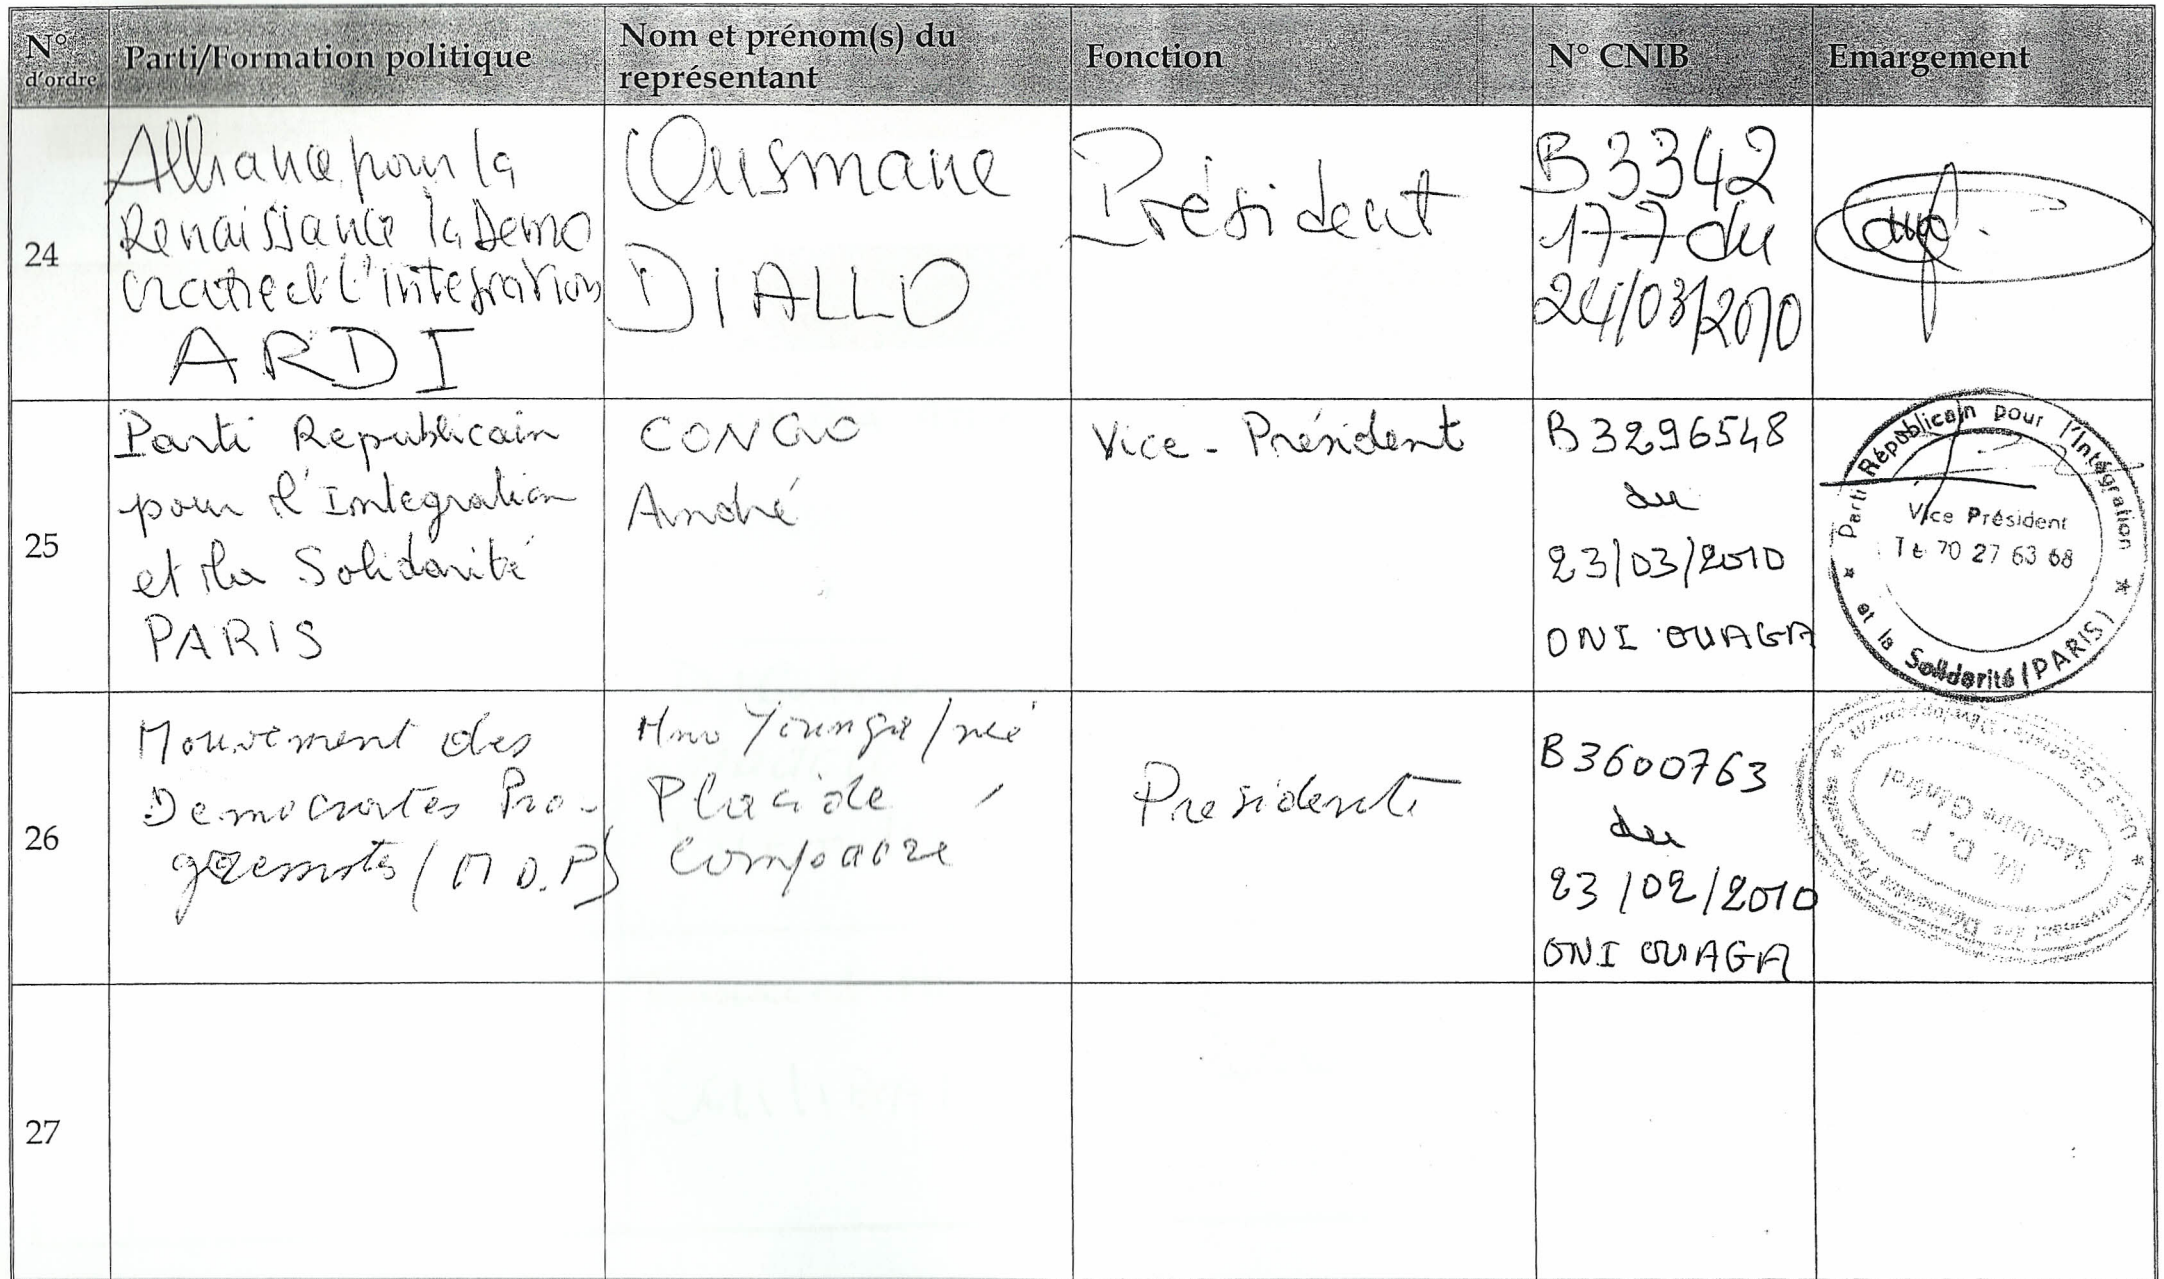 N° d'ordre
Parti/Formation politique
Nom et prénom(s) du
représentant
Fonction
N° CNIB
Emargement
24
Alliance pour la
Renaissance la Démo
cratie et l'intégration
ARDI
Ousmane
DIALLO
Président
B3342
177 du
24/03/2010
25
Parti Republicain
pour l'Integration
et la Solidarité
PARIS
CONGO
André
Vice-Président
B3296548
du
23/03/2010
ONI OUAGA
Parti Républicain pour l'Intégration
et la Solidarité (PARIS)
Vice Président
70 27 63 68
26
Mouvement des
Democrates Pro-
(M.D.P)
Placide
Compaoré
Presidente
B3600763
du
23/02/2010
ONI OUAGA
Mouvement des Démocrates
M. D. P
Secrétaire Général
27